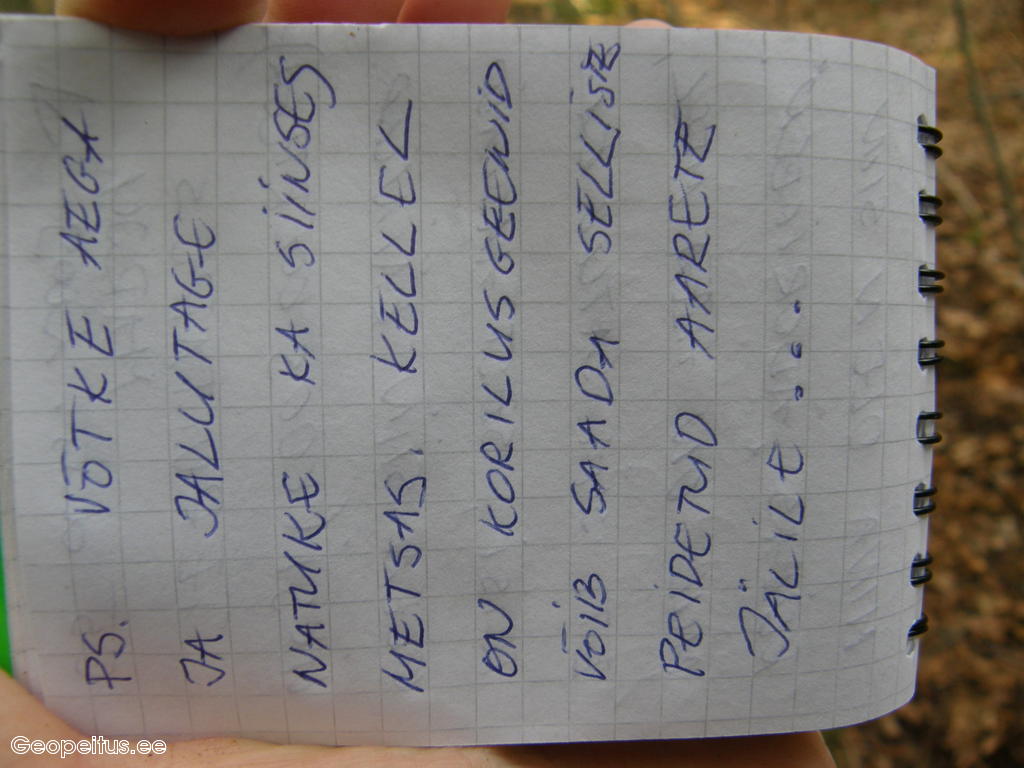 PS. VÕTKE AEGA
JA JALUTAGE
NATUKE KA SIINSES
METSAS. KELLEL
ON KORILUSGEENID
VÕIB SAADA SELLISE
PEIDETUD AARETE
JÄLILE ...
Geopeitus.ee